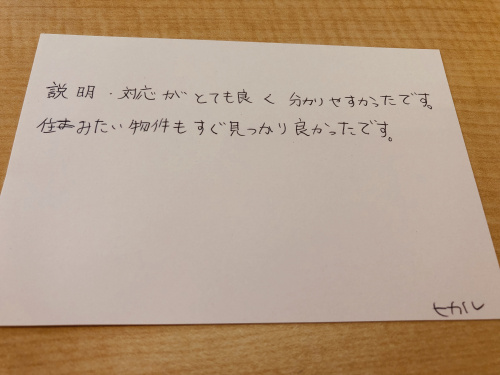 説明・対応がとても良く分かりやすかったです。
住みたい物件もすぐ見つかり良かったです。
ヒカル